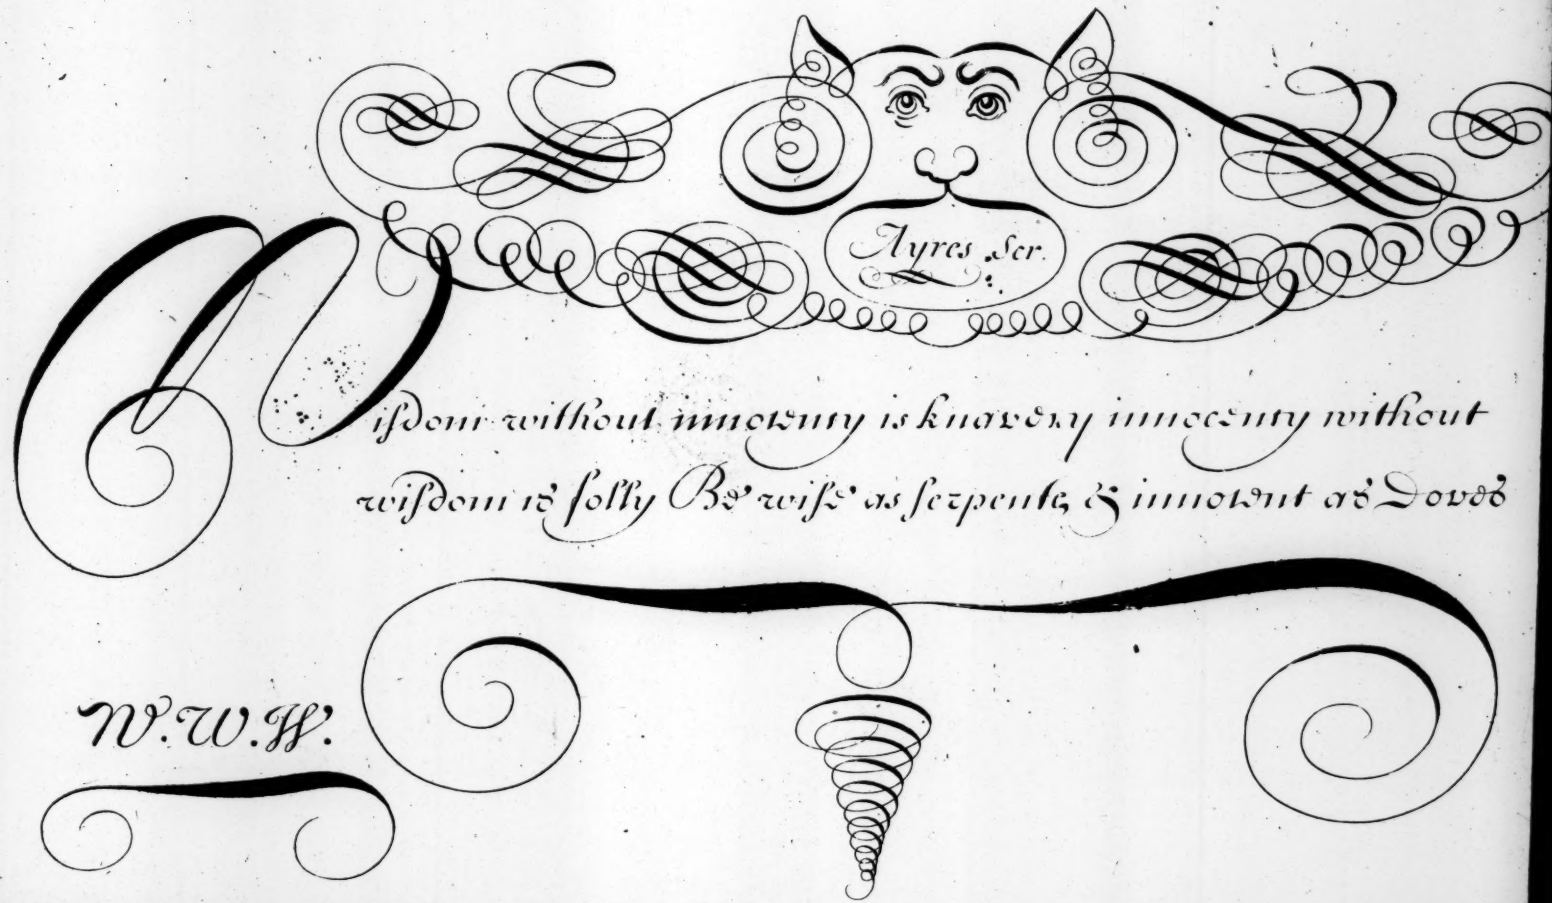 Ayres Scr.
Wiſdom without innocency is knavery innocency without
wiſdom is folly Be wiſe as ſerpents & innocent as Doves
W.W.W.